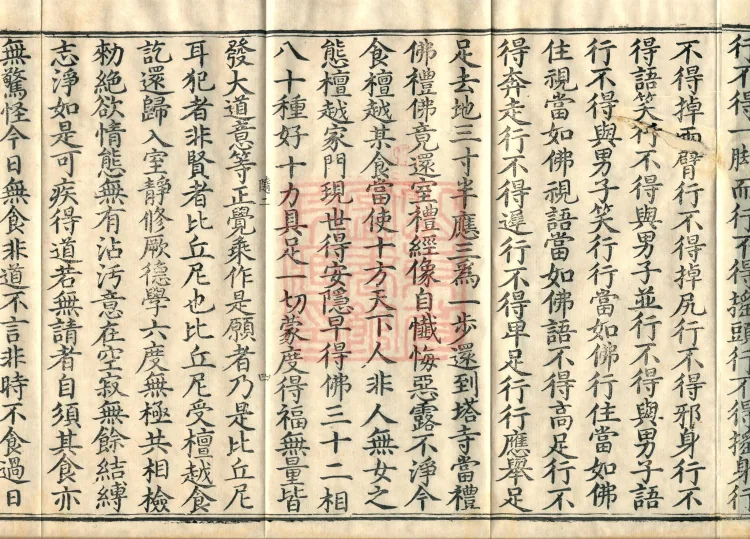 行不得一脚而行不得搖頭行不得搖身行
不得掉兩臂行不得掉尻行不得邪身行不
得語笑行不得與男子並行不得與男子語
行不得與男子笑行行當如佛行住當如佛
住視當如佛視語當如佛語不得高足行不
得奔走行不得遲行不得卑足行行應舉足
足去地三寸半應三為一步還到塔寺當禮
佛禮佛竟還室禮經像自懺悔惡露不淨今
食檀越某食當使十方天下人非人無女之
態檀越家門現世得安隱早得佛三十二相
八十種好十力具足一切蒙度得福無量皆
二 四
發大道意等正覺乘作是願者乃是比丘尼
耳犯者非賢者比丘尼也比丘尼受檀越食
訖還歸入室靜修厥德學六度無極共相檢
勑絕欲情態無有沾污意在空寂無餘結縛
志淨如是可疾得道若無請者自須其食亦
無驚怪今日無食非道不言非時不食過日